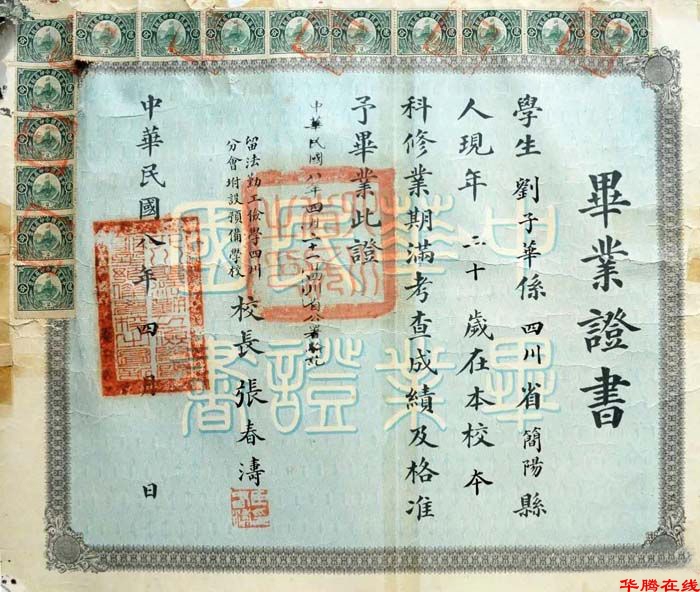 畢業證書
學生劉子華係四川省簡陽縣
人現年二十歲在本校本
科修業期滿考查成績及格准
予畢業此證
中華民國八年四月二十二日四川省公署驗訖
留法勤工儉學四川
分會坿設預備學校
校長張春濤
中華民國八年四月 日
中華民國
畢業證書
华腾在线